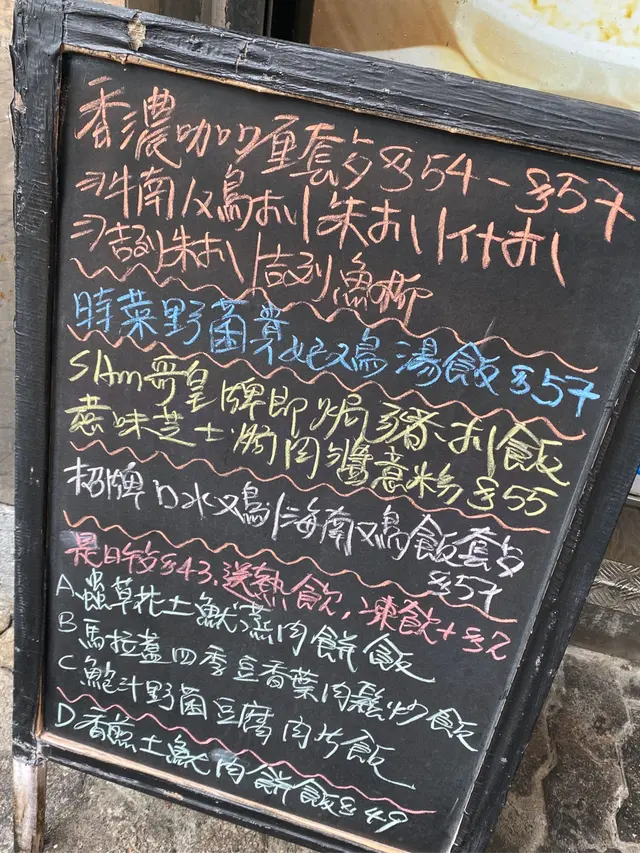 香濃咖喱套歺 $54-$57
牛南/又鳥扒/朱扒/什扒
吉列朱扒/吉列魚柳
時菜野菌煮又鳥湯飯 $57
SIAm哥皇牌即焗豬扒飯
意味芝士肉醬意粉 $55
招牌口水又鳥/海南又鳥飯套歺
$57
是日午歺$43.送熱飲,凍飲+$2
A.蟲草花土魷蒸肉餅飯
B 馬拉盞四季豆香葉肉鬆炒飯
C 鮑汁野菌豆腐肉片飯
D 香煎土魷肉餅飯$49